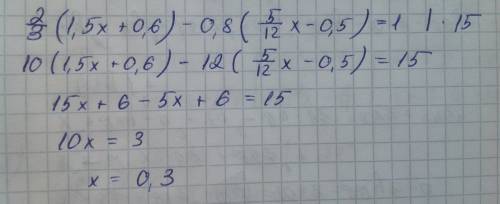 2/3 (1,5x + 0,6) - 0,8 (5/12 x - 0,5) = 1 | · 15
10 (1,5x + 0,6) - 12 (5/12 x - 0,5) = 15
15x + 6 - 5x + 6 = 15
10x = 3
x = 0,3